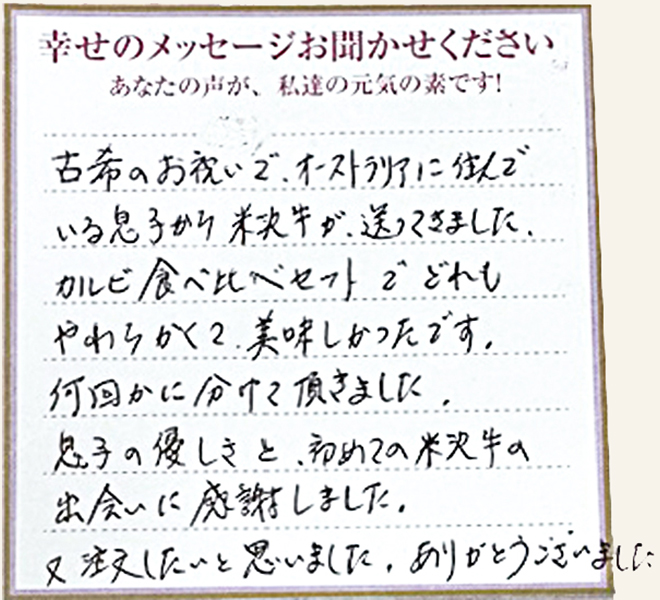 幸せのメッセージお聞かせください
あなたの声が、私達の元気の素です!
古希のお祝いで、オーストラリアに住んで
いる息子から米沢牛が、送ってきました。
カルビ食べ比べセットでどれも
やわらかくて、美味しかったです。
何回かに分けて頂きました。
息子の優しさと、初めての米沢牛の
出会いに感謝しました。
又注文したいと思いました。ありがとうございました